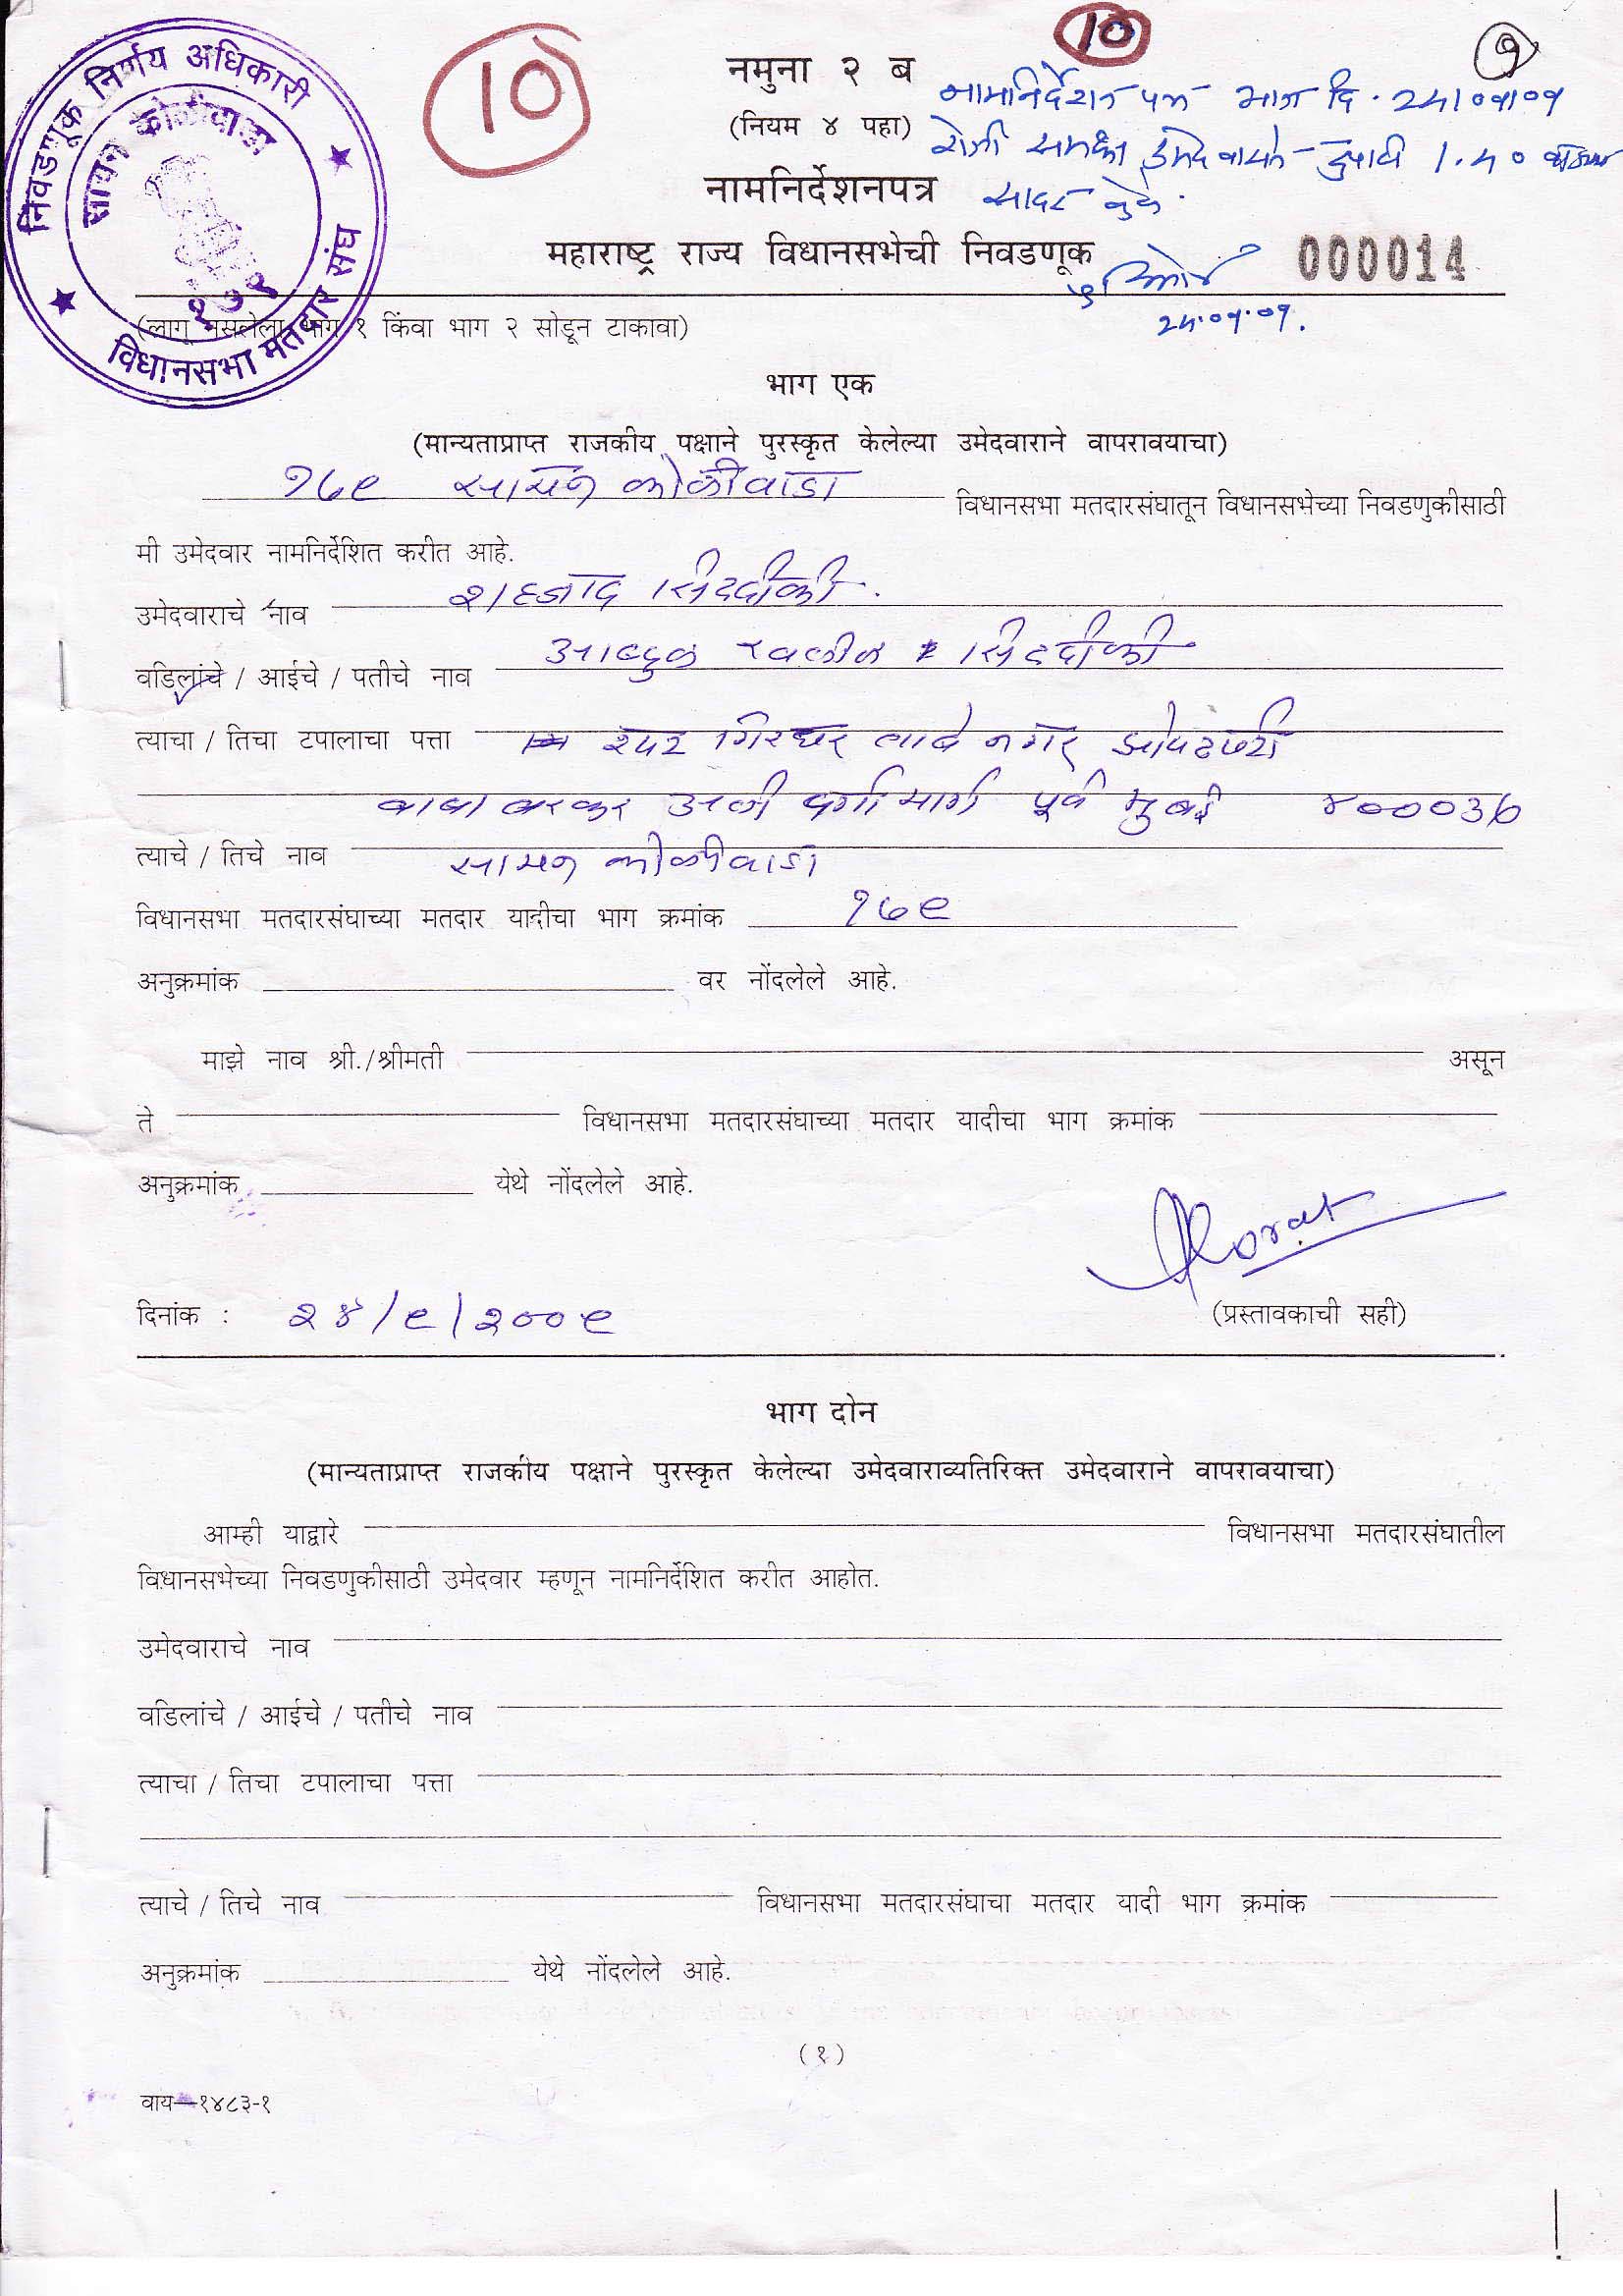 निवडणूक निर्णय अधिकारी
सायन कोळीवाडा
१७९
विधानसभा मतदार संघ
10
10
१
नमुना २ ब
(नियम ४ पहा)
नामनिर्देशनपत्र
महाराष्ट्र राज्य विधानसभेची निवडणूक
नामनिर्देशन पत्र आज दि.
रोजी समक्ष
सादर केले.
000014
(लागू नसलेला भाग १ किंवा भाग २ सोडून टाकावा)
भाग एक
(मान्यताप्राप्त राजकीय पक्षाने पुरस्कृत केलेल्या उमेदवाराने वापरावयाचा)
१७९ सायन कोळीवाडा विधानसभा मतदारसंघातून विधानसभेच्या निवडणुकीसाठी
मी उमेदवार नामनिर्देशित करीत आहे.
उमेदवाराचे नाव शहजाद सिददीकी.
वडिलांचे / आईचे / पतीचे नाव अब्दुल खलील सिददीकी
त्याचा / तिचा टपालाचा पत्ता २५२ गिरधर नगर झोपडपटी
बाबा अली दर्गा मार्ग पूर्व मुंबई ४०००३७
त्याचे / तिचे नाव सायन कोळीवाडा
विधानसभा मतदारसंघाच्या मतदार यादीचा भाग क्रमांक १७९
अनुक्रमांक वर नोंदलेले आहे.
माझे नाव श्री./श्रीमती असून
ते विधानसभा मतदारसंघाच्या मतदार यादीचा भाग क्रमांक
अनुक्रमांक येथे नोंदलेले आहे.
दिनांक : २४/९/२००९ (प्रस्तावकाची सही)
भाग दोन
(मान्यताप्राप्त राजकीय पक्षाने पुरस्कृत केलेल्या उमेदवाराव्यतिरिक्त उमेदवाराने वापरावयाचा)
आम्ही याद्वारे विधानसभा मतदारसंघातील
विधानसभेच्या निवडणुकीसाठी उमेदवार म्हणून नामनिर्देशित करीत आहोत.
उमेदवाराचे नाव
वडिलांचे / आईचे / पतीचे नाव
त्याचा / तिचा टपालाचा पत्ता
त्याचे / तिचे नाव विधानसभा मतदारसंघाचा मतदार यादी भाग क्रमांक
अनुक्रमांक येथे नोंदलेले आहे.
(१)
वाय—१४८३-१